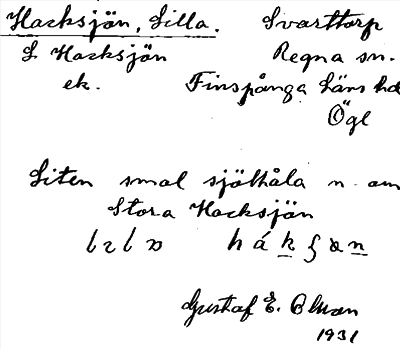 Hacksjön, Lilla. Svarttorp
L Hacksjön Regna sn.
ek. Finspånga Läns hd
Ögl
Liten smal sjöhåla n. om
Stora Hacksjön
Gustaf E. Olsson
1931